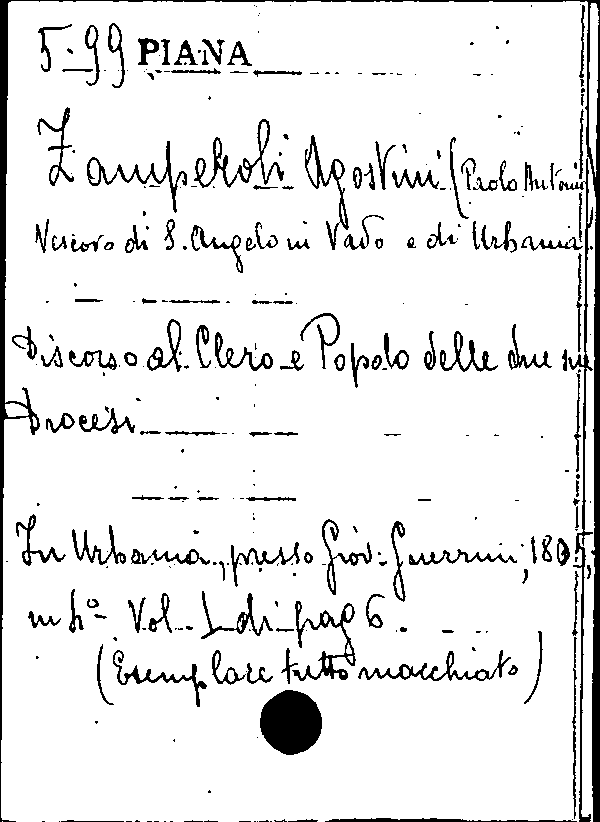 5.99 PIANA
Zamperoli Agostini (Paolo Antonio)
Vescovo di S. Angelo in Vado e di Urbania.
Discorso al Clero e Popolo delle due sue
Diocesi
In Urbania, presso Giov: Guerrini, 1805,
in 4° Vol. 1 di pag 6.
(Esemplare tutto macchiato)